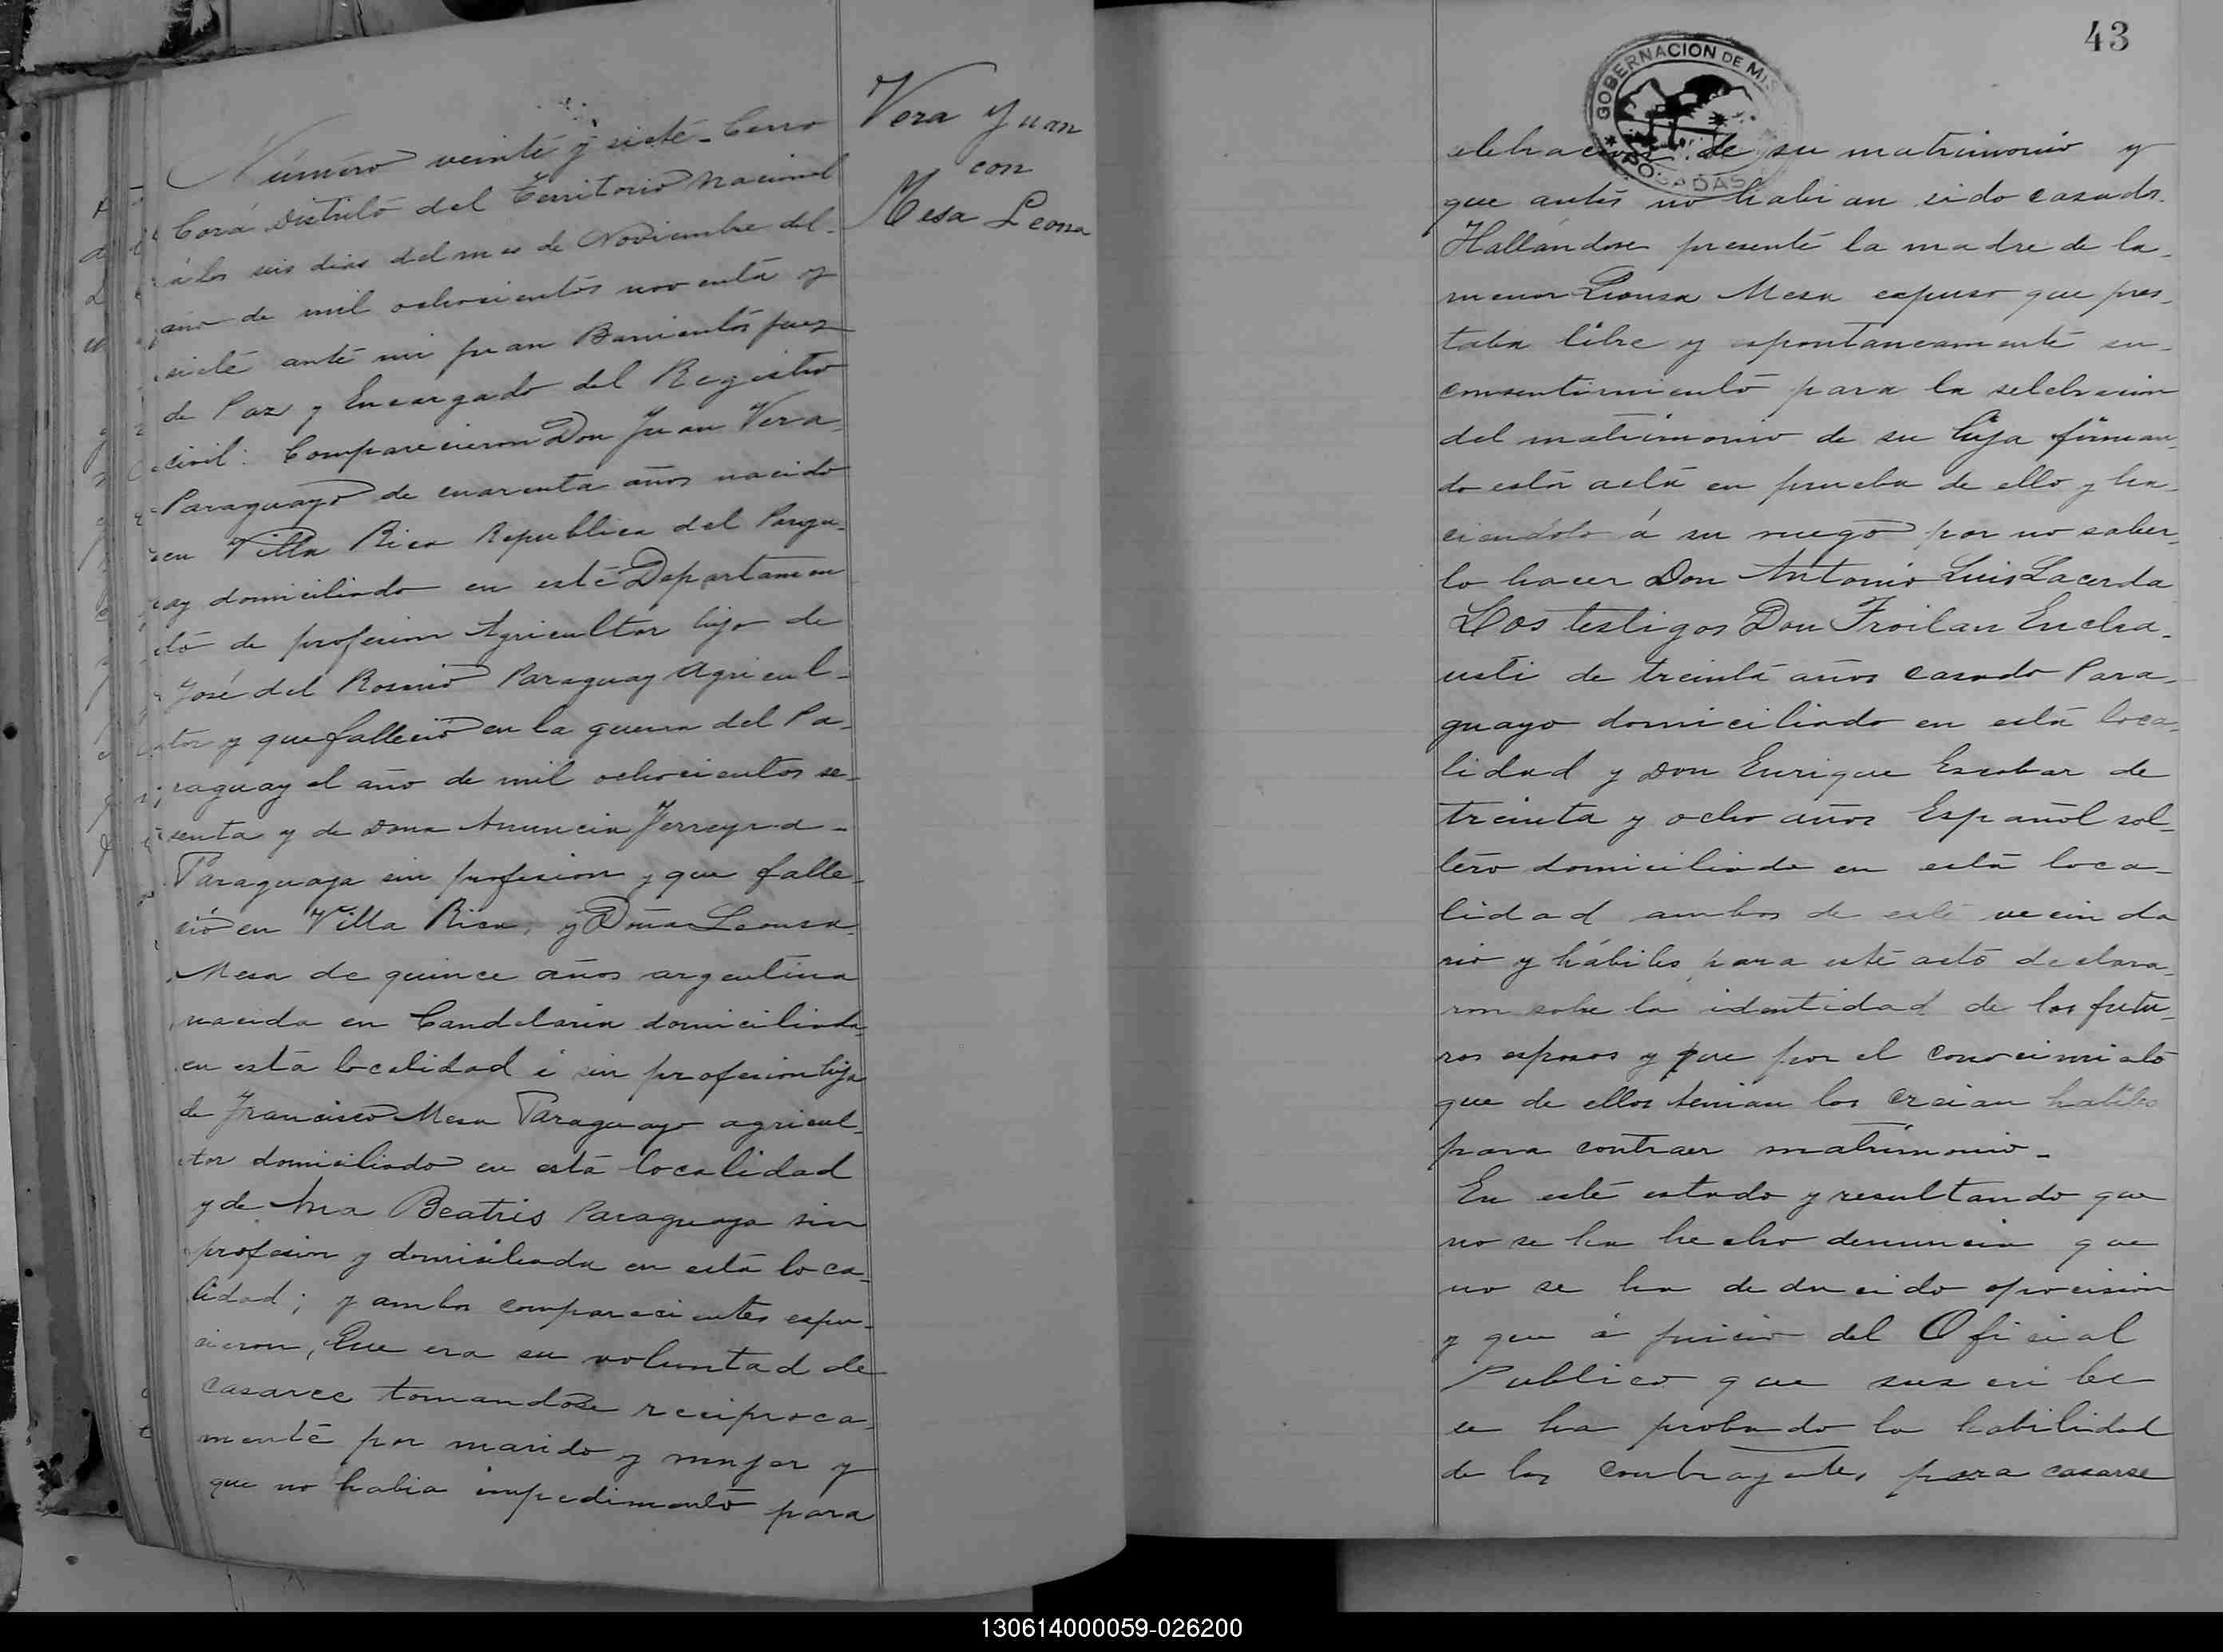 Número veinte y siete - Cerro
Corá Distrito del Territorio Nacional
á los seis dias del mes de Noviembre del
año de mil ochocientos noventa y
siete ante mi Juan Barrientos Juez
de Paz y Encargado del Registro
civil: Comparecieron Don Juan Vera
Paraguayo de cuarenta años nacido
en Villa Rica Republica del Paragu-
ay domiciliado en este Departamen
to de profesion Agricultor hijo de
José del Rosario Paraguay Agricul-
tor y que fallecio en la guerra del Pa-
raguay el año de mil ochocientos se-
senta y de Dona Anuncia Ferreyra -
Paraguaya sin profesion y que falle-
cio en Villa Rica, y Doña Leonsa
Mesa de quince años argentina
nacida en Candelaria domiciliada
en esta localidad i sin profesion hija
de Francisco Mesa Paraguayo agricul-
tor domiciliado en esta localidad
y de Ana Beatris Paraguaya sin
profesion y domiciliada en esta loca-
lidad; y ambos comparecientes espu-
sieron, Que era su voluntad de
casarce tomandose reciproca-
mente por marido y mujer y
que no habia impedimento para
Vera Juan
con
Mesa Leona
43
GOBERNACION DE MIS
POSADAS
celebracion de su matrimonio y
que antes no habian sido casados.
Hallandose presente la madre de la
menor Leonsa Mesa espuso que pres-
taba libre y espontaneamente su
consentimiento para la selebracion
del matrimonio de su hija firman-
do esta acta en prueba de ello y ha-
ciendolo á su ruego por no saber-
lo hacer Don Antonio Luis Lacerda
Los testigos Don Froilan Encha-
usti de treinta años casado Para-
guayo domiciliado en esta loca-
lidad y Don Enrique Escobar de
treinta y ocho años Español sol-
tero domiciliado en esta loca-
lidad ambos de este vecinda
rio y hábiles para este acto declara-
ron sobre la identidad de los futu-
ros esposos y que por el conocimiato
que de ellos tenian los creian habiles
para contraer matrimonio -
En este estado y resultando que
no se ha hecho denuncia que
no se ha deducido oposision
y que á juicio del Oficial
Publico que suscribe
se ha probado la habilidad
de los contrayentes para casarse
130614000059-026200